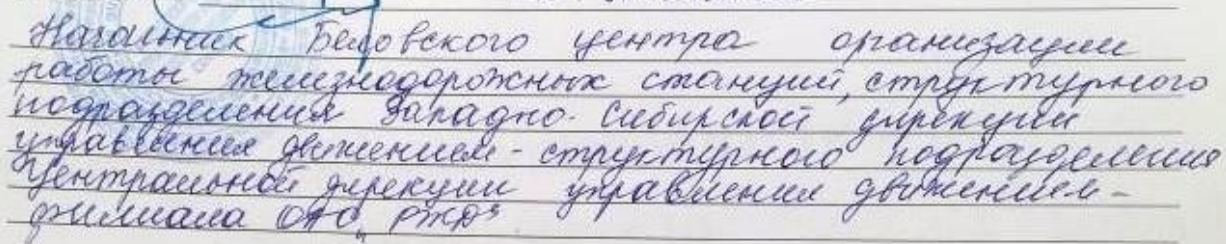 Начальник Беловского центра организации
работы железнодорожных станций, структурного
подразделения Западно-Сибирской дирекции
управления движением - структурного подразделения
Центральной дирекции управления движением -
филиала ОАО "РЖД"